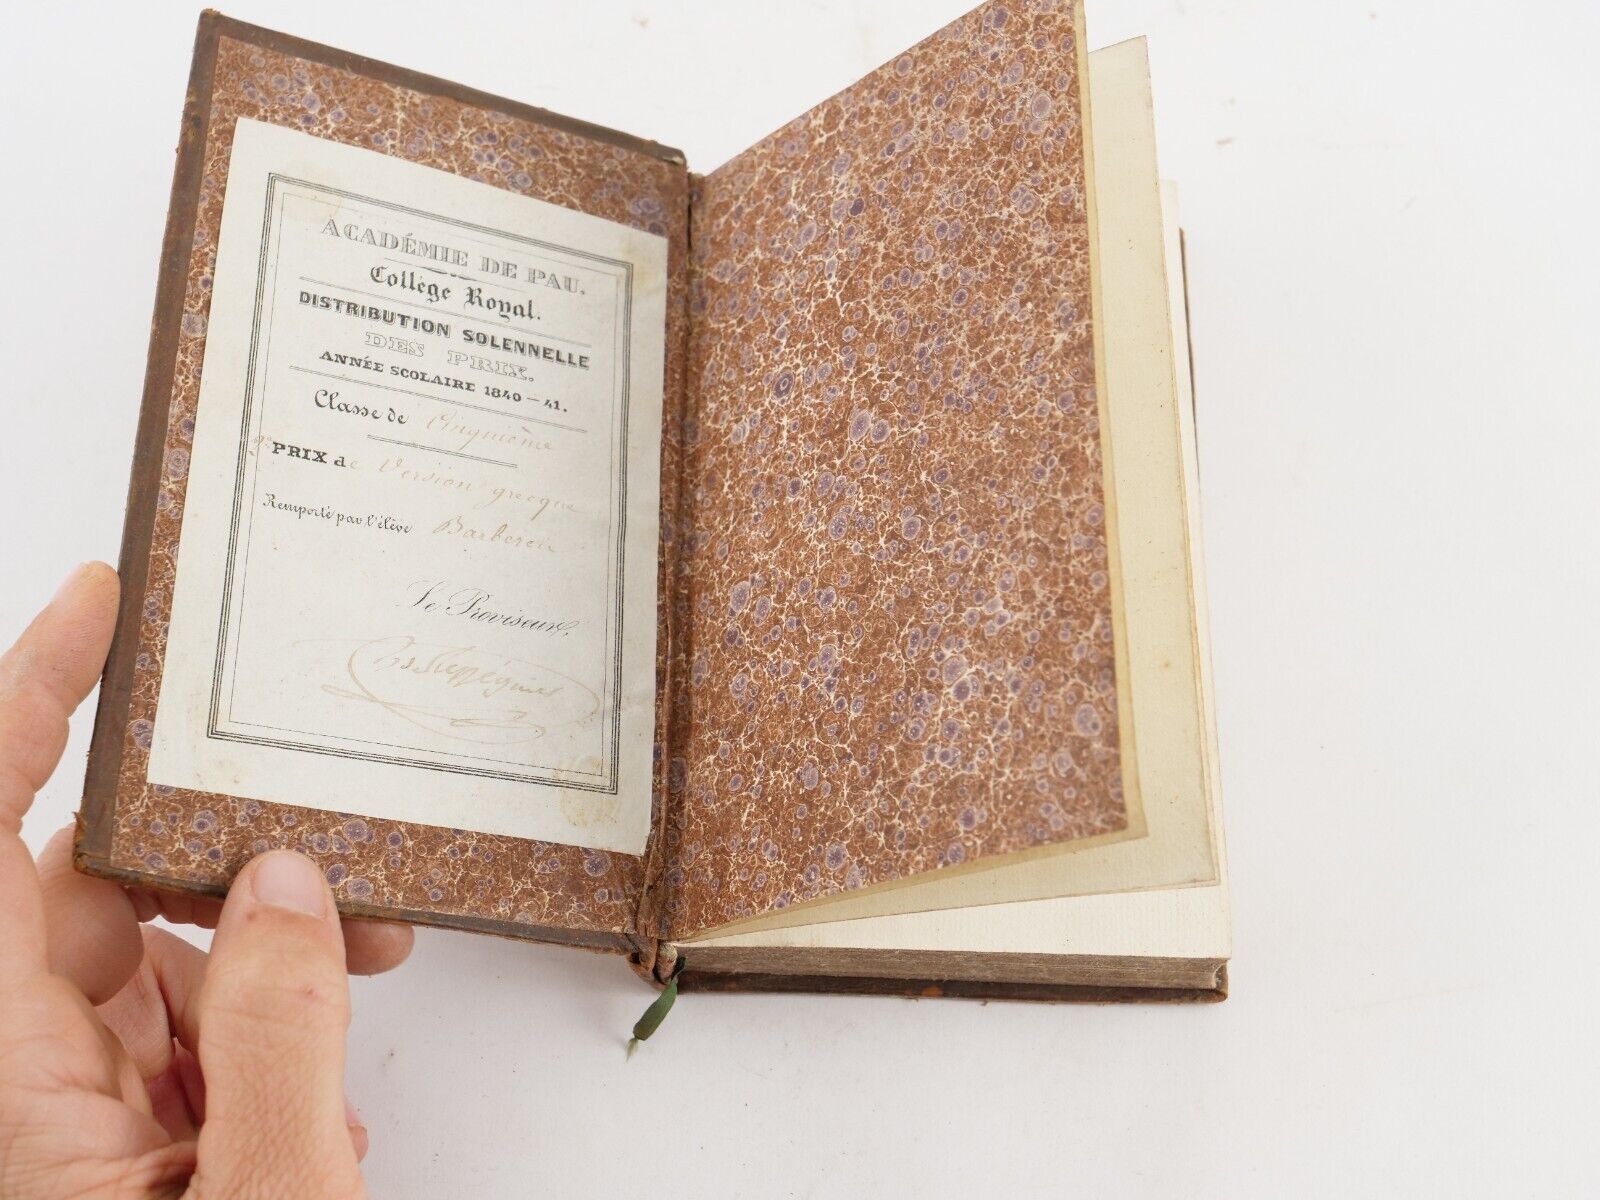 ACADÉMIE DE PAU.
Collége Royal.
DISTRIBUTION SOLENNELLE
DES PRIX.
ANNÉE SCOLAIRE 1840—41.
Classe de Cinquième
PRIX de Version grecque
Remporté par l'élève
Le Proviseur,